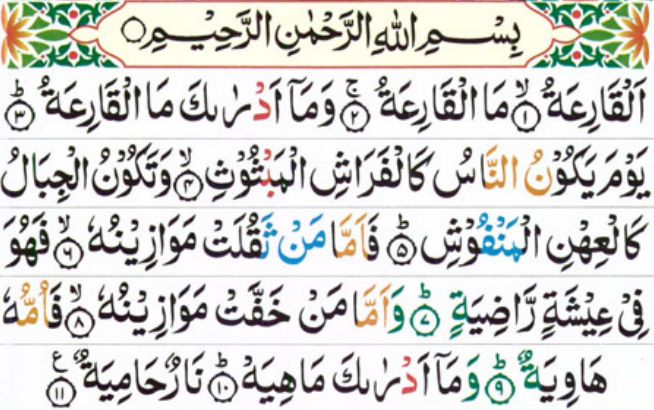 بِسْمِ اللهِ الرَّحْمٰنِ الرَّحِيْمِ
اَلْقَارِعَةُ ۙ﴿۱﴾ مَا الْقَارِعَةُ ۚ﴿۲﴾ وَمَاۤ اَدْرٰىكَ مَا الْقَارِعَةُ ؕ﴿۳﴾
يَوْمَ يَكُوْنُ النَّاسُ كَالْفَرَاشِ الْمَبْثُوْثِ ۙ﴿۴﴾ وَتَكُوْنُ الْجِبَالُ
كَالْعِهْنِ الْمَنْفُوْشِ ؕ﴿۵﴾ فَاَمَّا مَنْ ثَقُلَتْ مَوَازِيْنُهٗ ۙ﴿۶﴾ فَهُوَ
فِيْ عِيْشَةٍ رَّاضِيَةٍ ؕ﴿۷﴾ وَاَمَّا مَنْ خَفَّتْ مَوَازِيْنُهٗ ۙ﴿۸﴾ فَاُمُّهٗ
هَاوِيَةٌ ؕ﴿۹﴾ وَمَاۤ اَدْرٰىكَ مَاهِيَهْ ؕ﴿۱۰﴾ نَارٌ حَامِيَةٌ ﴿۱۱﴾ ع